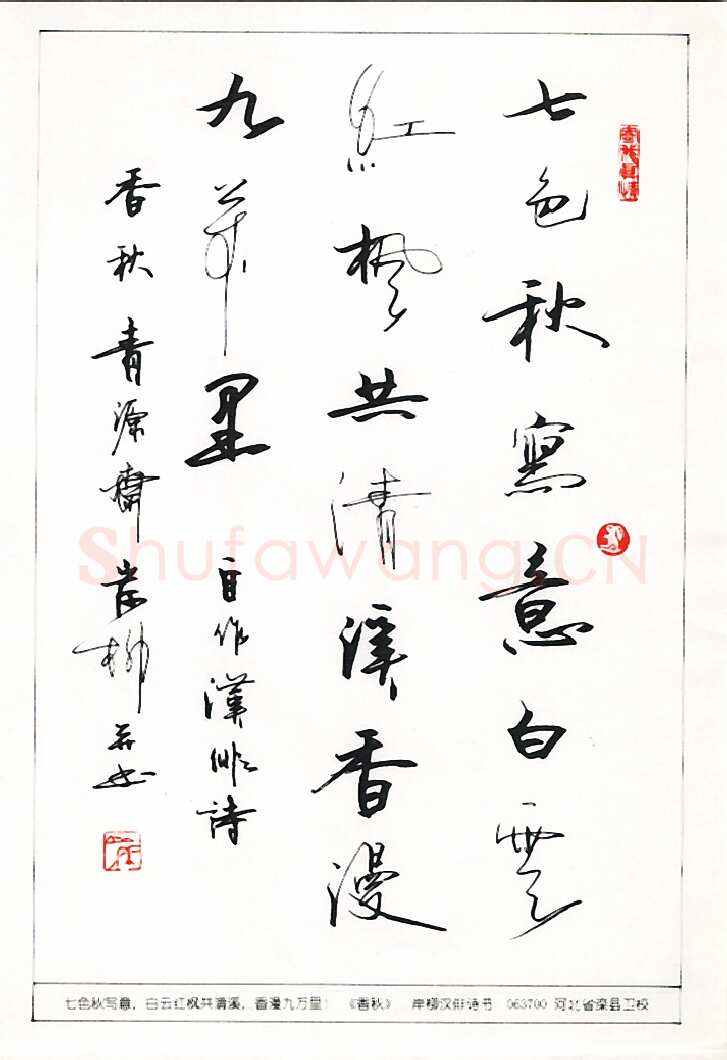 七色秋寫意白雲
紅楓共清溪香漫
九萬里
自作漢俳詩
香秋 青源齋 岸柳并书
Shufawang.CN
七色秋写意,白云红枫共清溪,香漫九万里! 《香秋》 岸柳汉俳诗书 063700 河北省滦县卫校